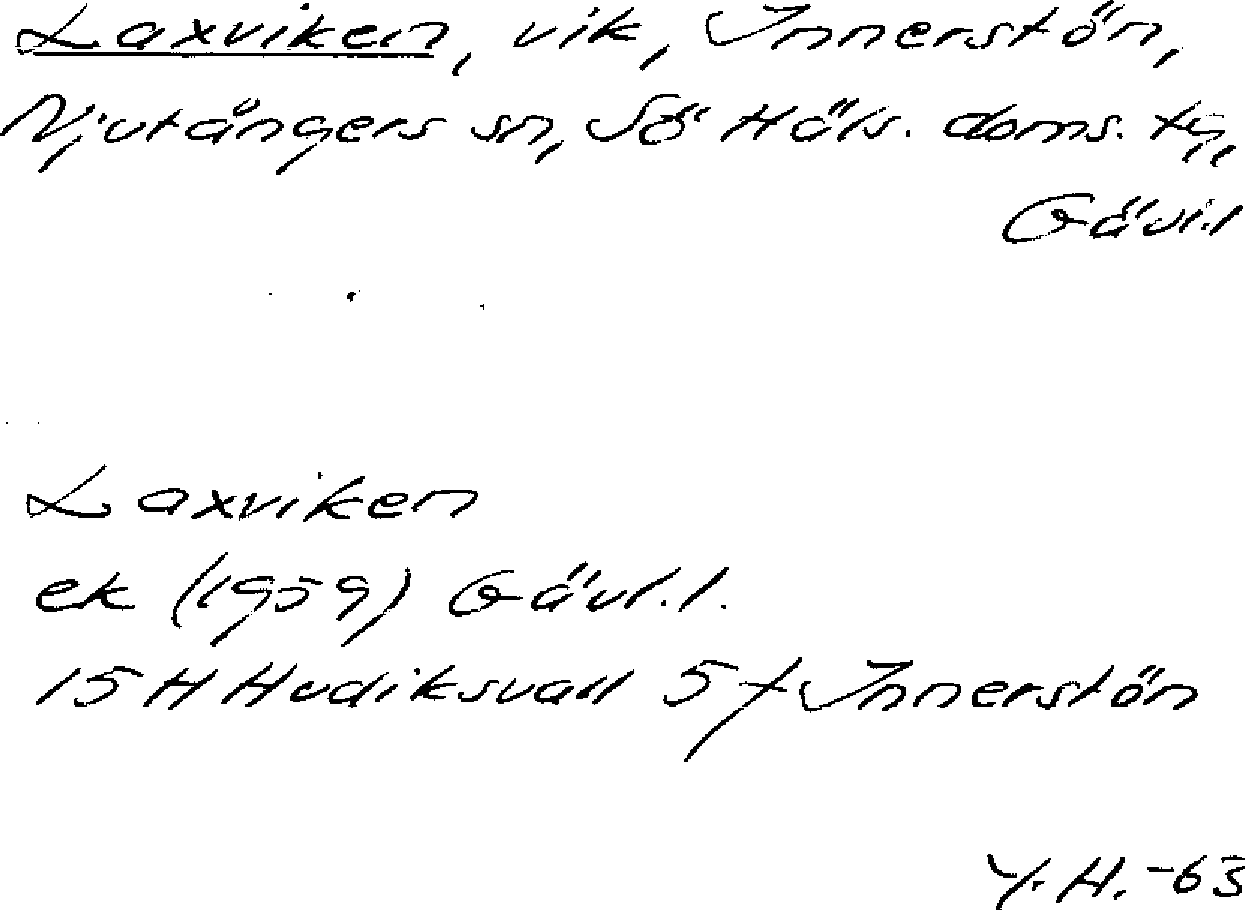 Laxviken, vik, Innerstön,
Njutångers sn, Sö Häls. doms. tg,
Gävl.l
Laxviken
ek (1959) Gävl.l.
15 H Hudiksvall 5 f Innerstön
Y.H. -63